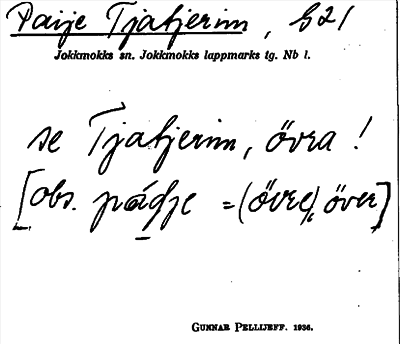 Paije Tjatjerim, b21
Jokkmokks sn. Jokkmokks lappmarks tg. Nb l.
se Tjatjerim, övra!
[obs. pádje = (övre), över]
GUNNAR PELLIJEFF. 1936.